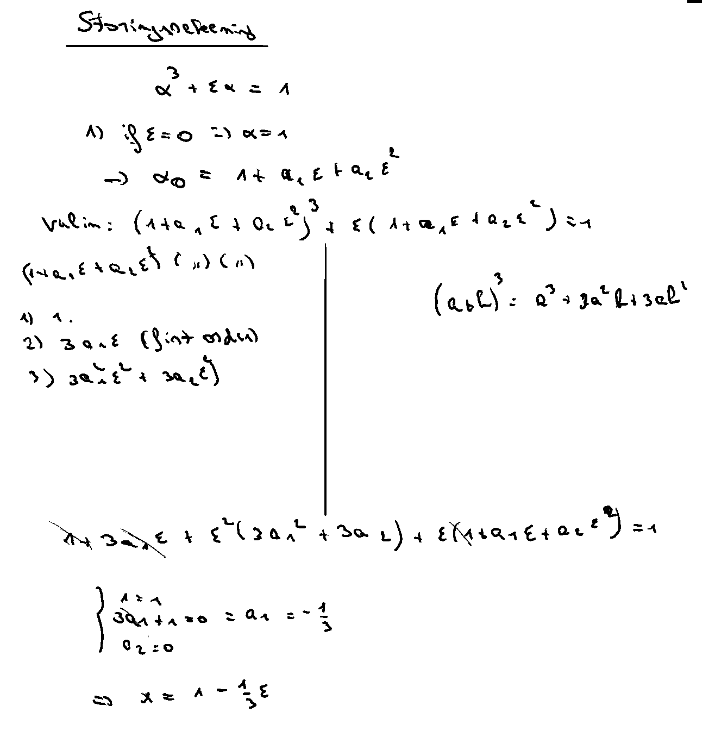 Storingsrekening
α³ + εα = 1
1) if ε=0 => α=1
→ α0 = 1+ a₁ ε + a₂ ε²
Vulin: (1+a₁ ε + a₂ ε²)³ + ε( 1+a₁ε +a₂ε²)=1
(1+a₁ε+a₂ε²) (") (")
1) 1.
2) 3a₁ε (first order)
3) 3a₁²ε² + 3a₂ε²)
(a+b)³= a³+3a²b+3ab²
1+3a₁ε + ε²(3a₁² +3a₂) + ε(1+a₁ε+a₂ε²) =1
1=1
3a₁+1=0 = a₁ = -1/3
a₂=0
=> x = 1 - 1/3 ε